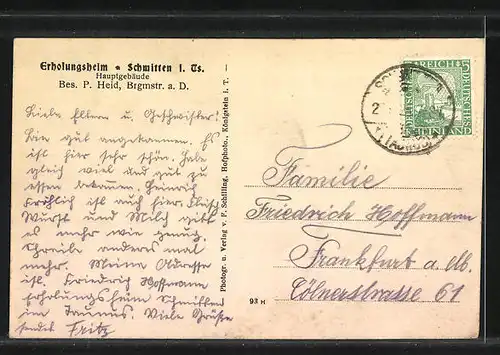 Erholungsheim * Schmitten i. Ts.
Hauptgebäude
Bes. P. Heid, Brgmstr. a. D.
Liebe Eltern u. Geschwister!
Bin gut angekommen. Es
ist hier sehr schön. Habe
gleich viel und gut zu
essen bekommen. Heinrich
Fröhlich ist auch hier. Fleisch
Wurst und Milch gibt
es mehr wie genug.
Schreibe anderes mal
mehr. Meine Adresse
ist. Friedrich Hoffmann
Erholungsheim Schmitten
im Taunus. Viele Grüße
sendet Fritz
Photogr. u. Verlag v. P. Schilling, Hofphoto., Königstein i. T.
93 H
DEUTSCHES REICH
5 5
RHEINLAND
(TAUNUS)
Familie
Friedrich Hoffmann
Frankfurt a. M.
Cölnerstrasse 61